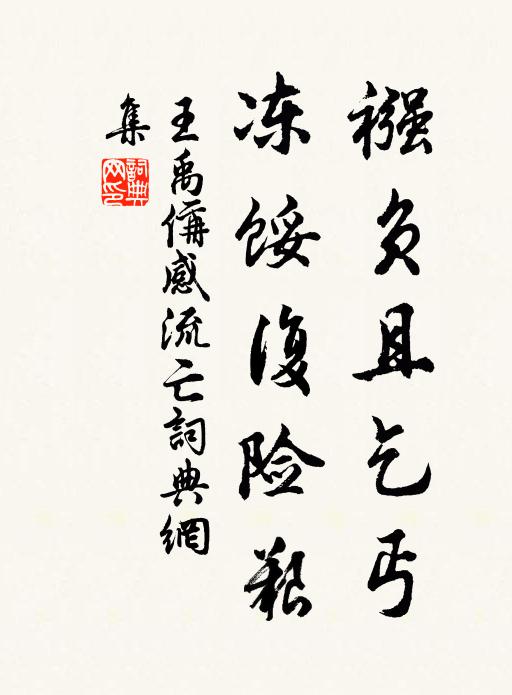 襁负且乞丐
冻馁复险艰
王禹偁感流亡詞典網
集
詞典网印